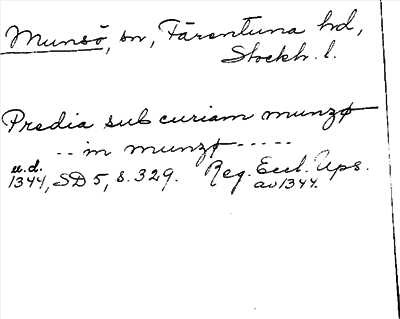 Munsö, sn, Färentuna hd,
Stockh. l.
Predia sub curiam munzø
-- in munzø -----
u.d.
1344, SD 5, s. 329. Reg. Eccl. Ups.
av 1344.